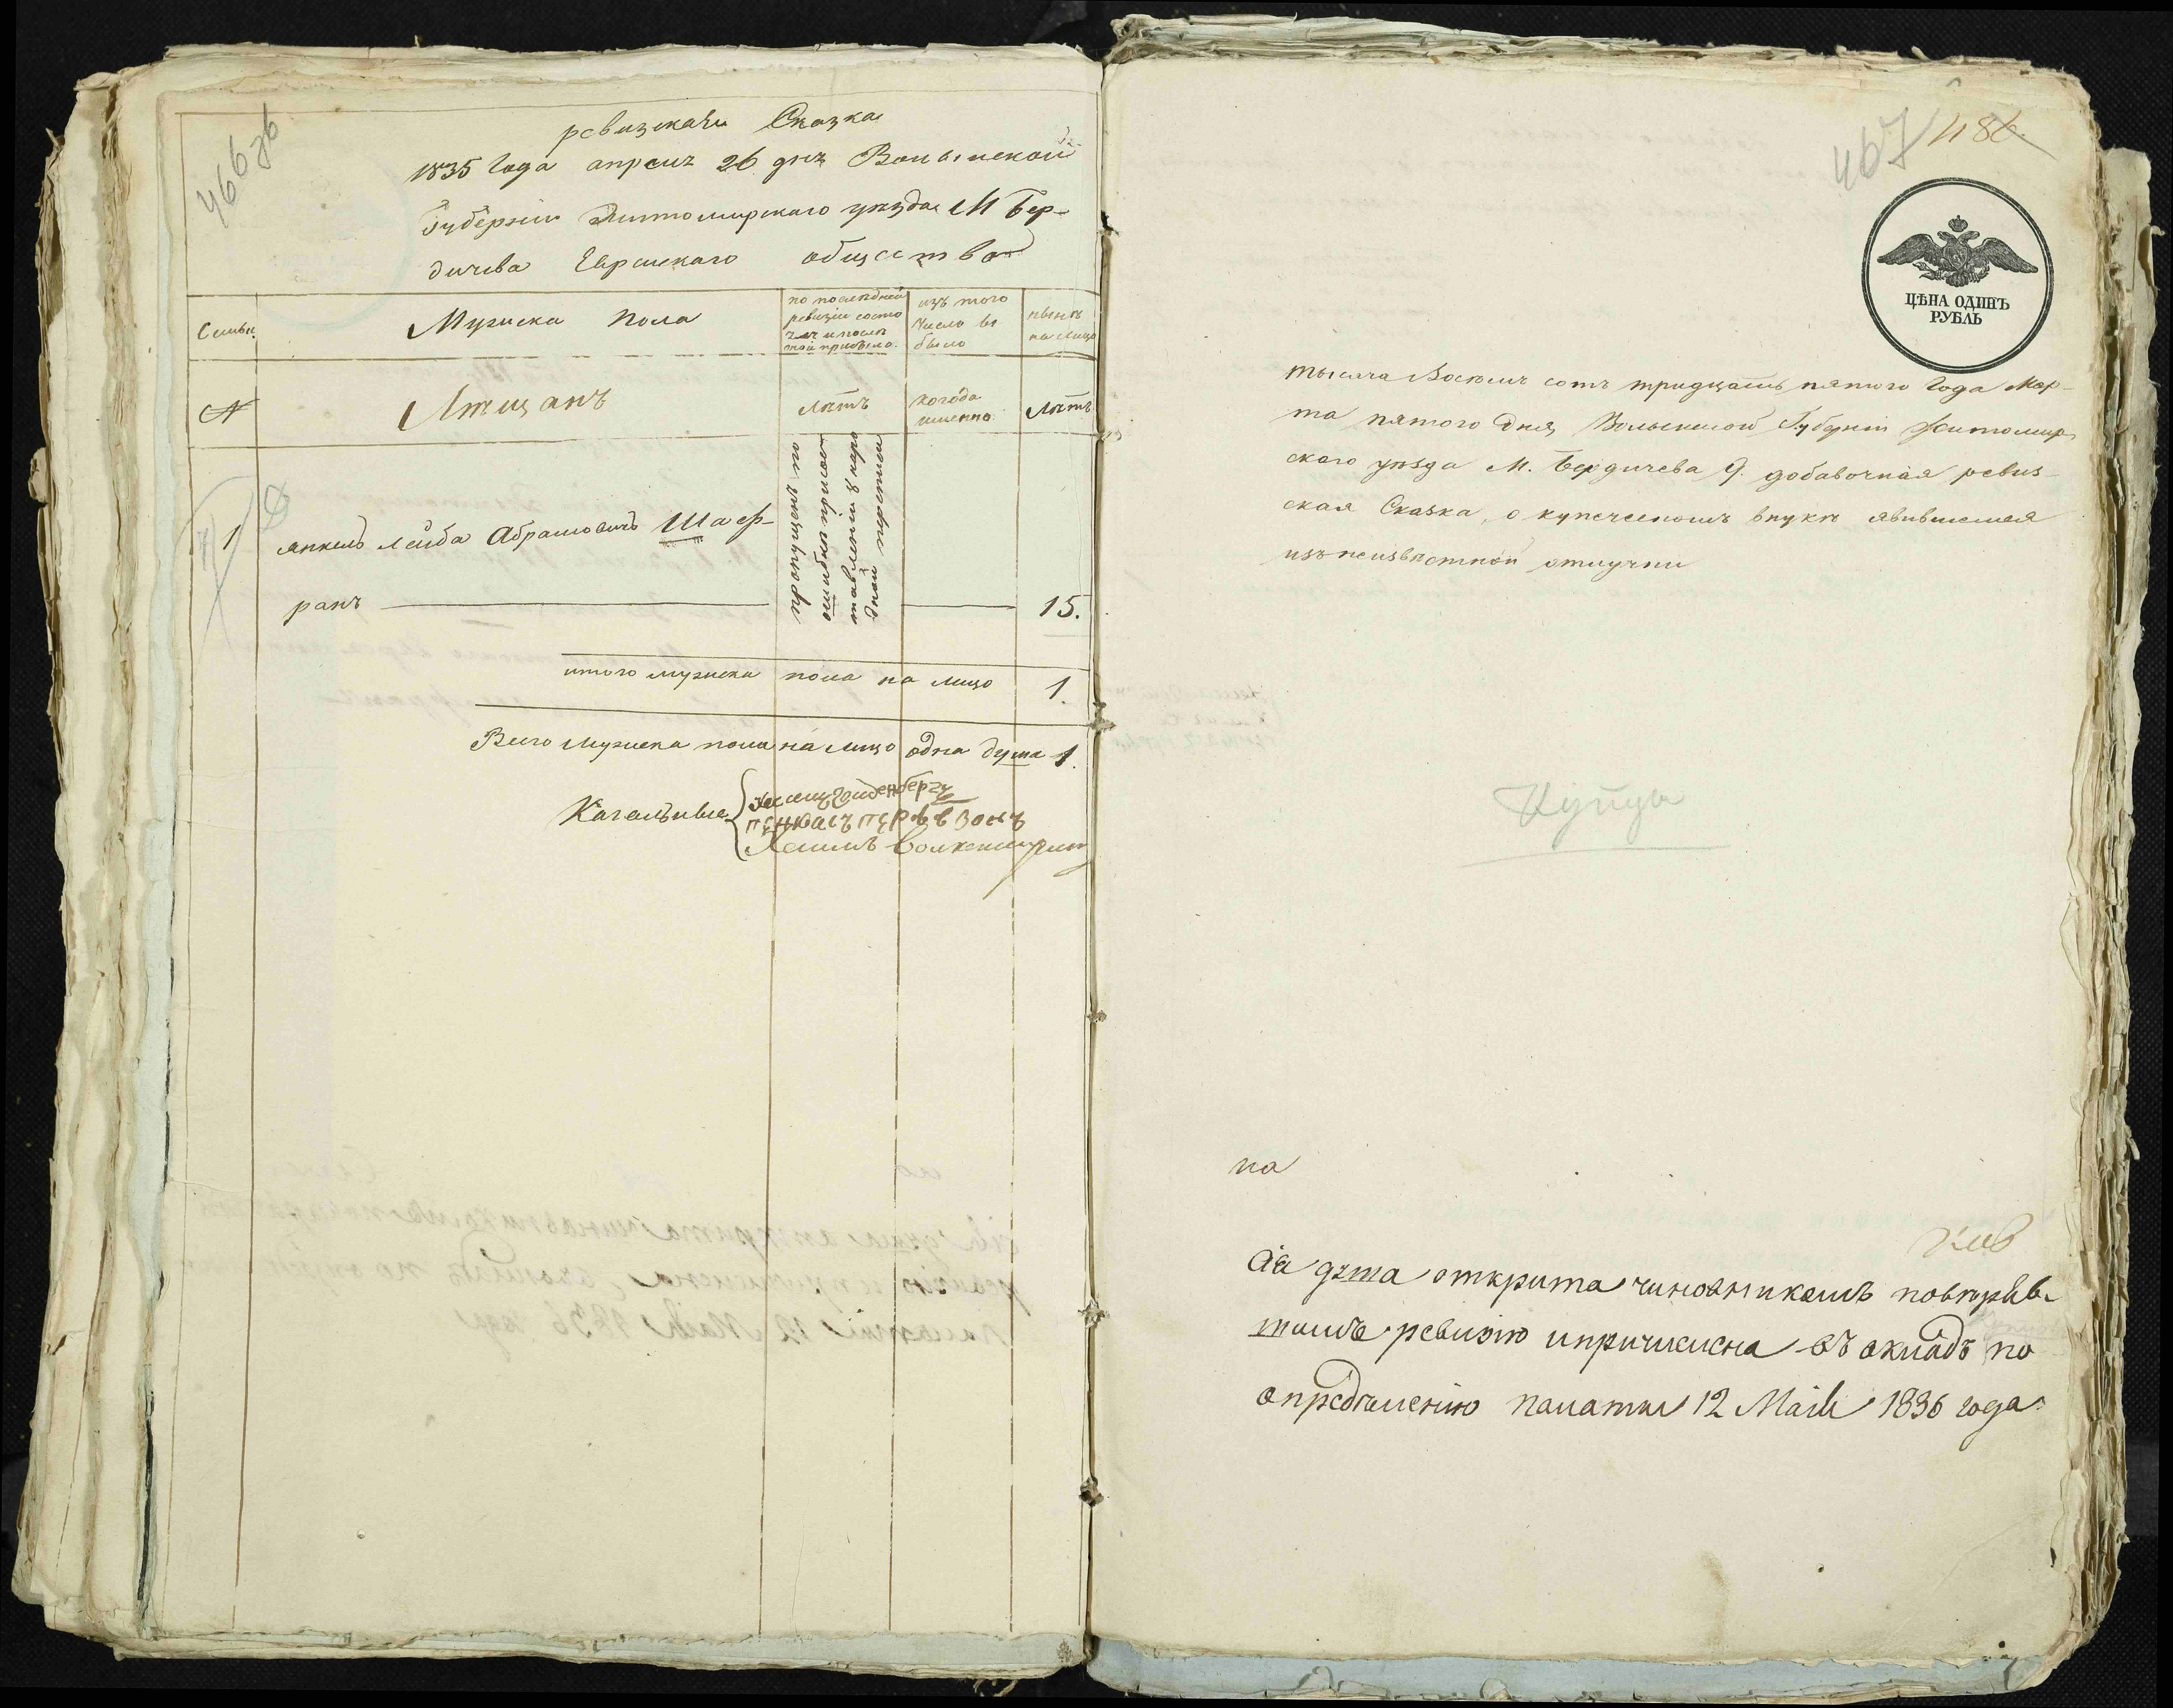 466 зв
ревизская Сказка
1835 Года апреля 26 дня Волынской
Губерніи Житомирскаго уезда М Бер-
дичева Еврейскаго общества
Семьи
Мужеска пола
по последней
ревизіи состо
яло и после
оной прибыло.
изъ того
числа вы
было
ныне
на лицо
№
Мещанъ
Летъ
когода
именно
Летъ
1
янкель Лейба Абрамовичъ Шаф-
ранъ
пропущенъ по
ошибке при сос
тавленіи
15.
итого мужеска пола на лицо 1.
Всего мужеска пола на лицо одна душа 1.
Кагальные
467
486
ЦѢНА ОДИНЪ
РУБЛЬ
тысяча Восемь сотъ тридцать пятого Года Мар-
та пятого Дня, Волынской Губерніи Житомир
скаго уезда М. Бердичева 9. добавочная ревиз-
ская Сказка, о купеческомъ внуке явившемся
изъ неизвестной отлучки
Купцы
на
Сiя душа открыта чиновникомъ поверяв-
шимъ ревизію и причислена въ окладъ по
определенію палаты 12 Маія 1836 года.